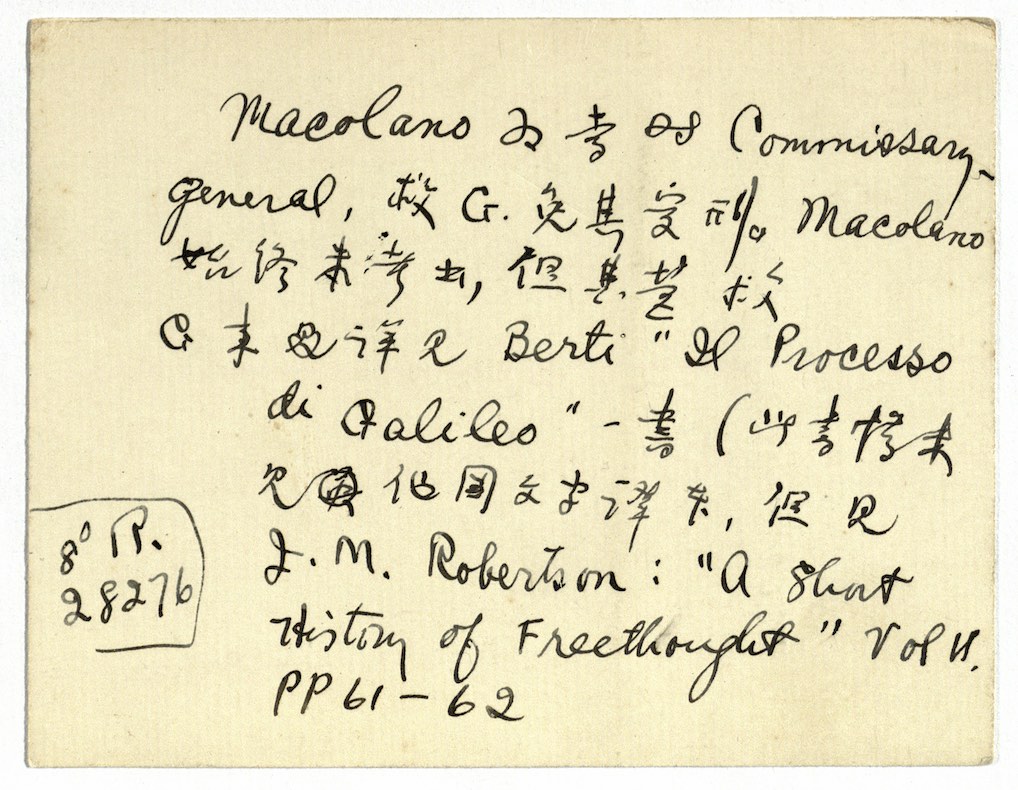 Macolano 为当时 Commissary-
general, 救 G. 免其受刑。Macolano
始终未考出, 但其营救
G 事 详见 Berti "Il Processo
di Galileo" 一书 (此书 未
见 他国文字译本, 但见
J. M. Robertson : "A Short
History of Freethought" Vol II.
PP 61 - 62
8° R.
28276